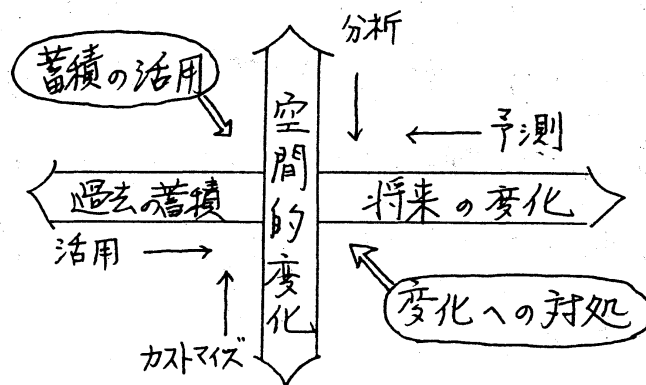 分析
蓄積の活用
予測
空間的変化
過去の蓄積
将来の変化
活用
変化への対処
カストマイズ